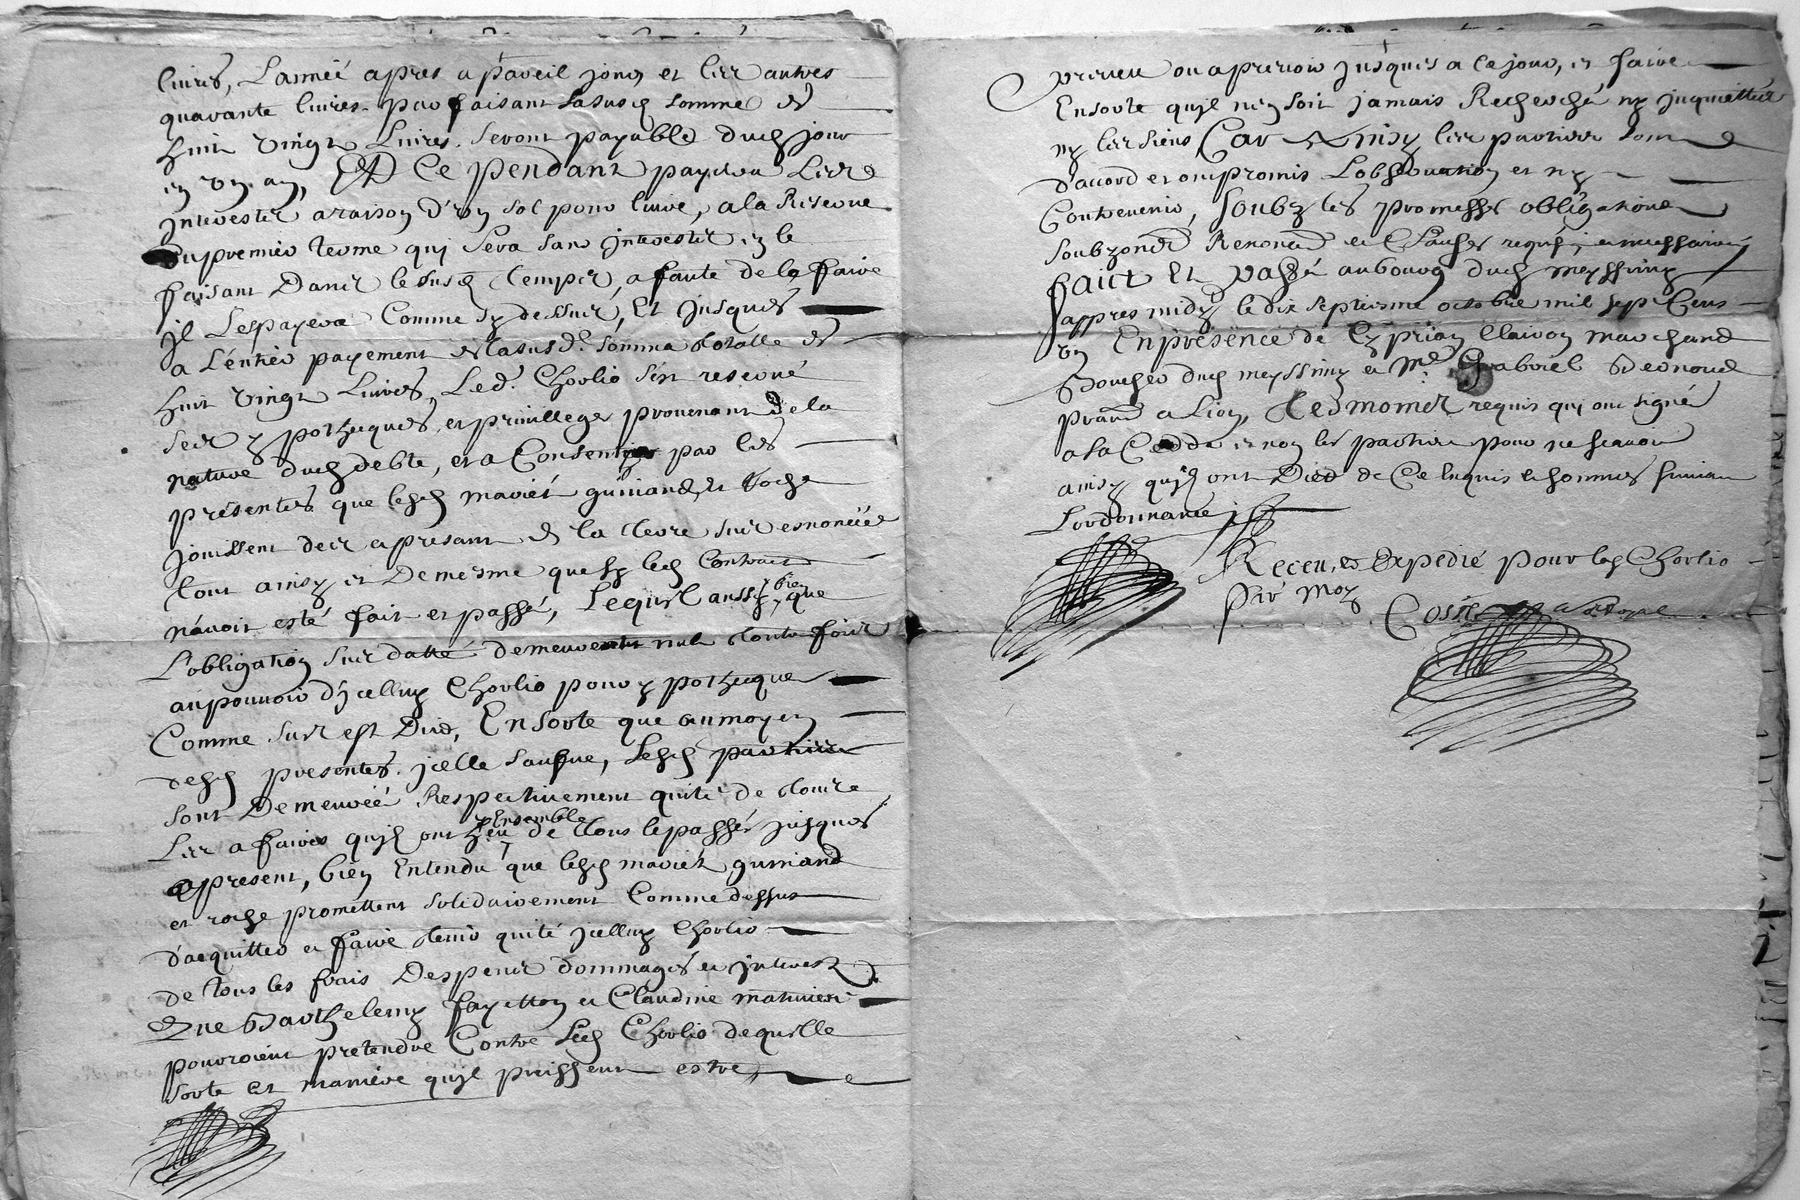 livres, L'année apres a pareil jour et les autres
quarante livres parfaisant lasusd somme de
huit vingt Livres seront payable dud jour
en un an, Et Ce pendant payera Les
jnterestz araison d'un sol pour livre, a la Reserve
dupremier terme qui sera sans jnterestz, en le
faisant Dans lesusd temps, a faute dele faire
jl Lespayera Comme sy dessus, Et jusques
a L'entier payement de lasusd.e somme totalle de
huit vingt Livres, Led. Chorlio s'est reservé
ses ypothecques, et privilleges provenant dela
nature dud debte, et a Consenty par les
presentes que lesd mariés guinand et roche
jouissent des apresant de la terre sus enoncée
tout ainsy et Demesme que sy led Contract
n'avoit esté fait et passé, Lequel aussy bien que
L'obligation sus datté demeurent nul toute fois
aupouvoir d'jcelluy Chorlio pour ypothecque
Comme sus est Dict, En sorte que aumoyen
desd presentes jcelle saufve, Lesd parties
sont Demeurée Respectivement quite de toutes
Les afaires qu'jls ont heu Ensemble de tous lepassés jusques
apresent, bien Entendu que lesd mariés guinand
et roche promettent solidairement Comme dessus
d'acquitter et faire tenir quité jcelluy Chorlio
de tous les frais Despens dommages et jnterestz
Que Barthelemy fayetton et Claudine mathieu
pourroient pretendre Contre Led Chorlio dequelle
sorte et maniere qu'jl puissent estre,
prevenu ou aprevoir jusques a ce jour, et faire
Ensorte qu'jl n'en soit jamais Recherché ny jnquietté
ny les siens Car Ainsy les parties sont
d'accord et ont promis L'observation et n'y
Contrevenir, soubz les promesses obligations
soubzon Renon et Clauses requises, et necessaires
faict Et passé aubourg dud meyssimy
appres midy le dix septiesme octobre mil sept Cens
un En presence de Cyprian Clairon marchand
Boucher dud meyssimy et Me Gabriel Bernoud
prat a Lion, tesmoinctz requis qui ont signé
a la Cedde et non les parties pour ne scavoir
ainsy qu'jls ont Dict de Ce enquis et sommés suivant
Lordonnance
Receu, et Expedié pour led Chorlio
par Moy
Coste